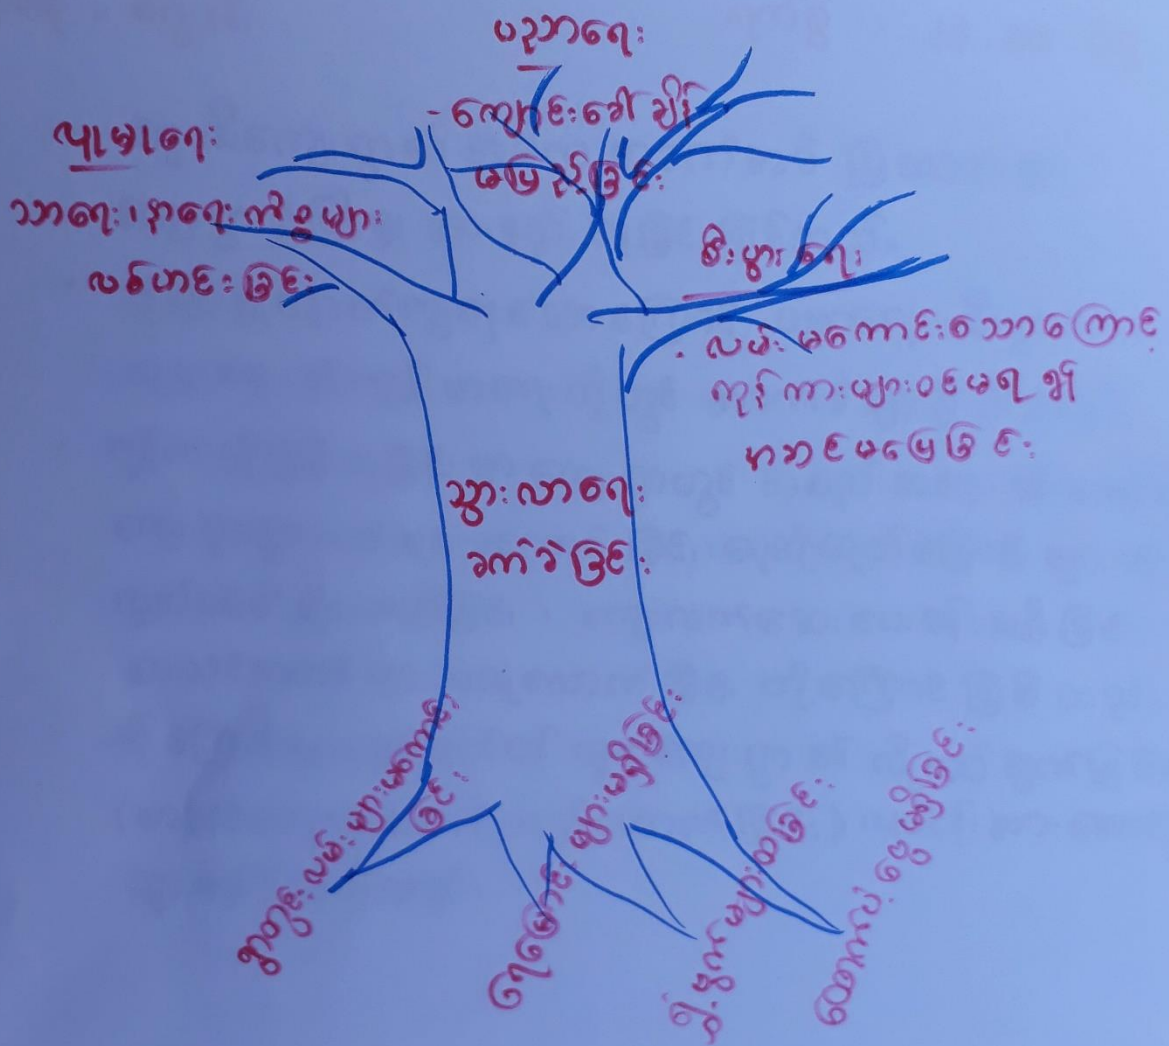 ပညာရေး
- ကျောင်းခေါ်ချိန်
မပြည့်ခြင်း
လူမှုရေး
သာရေး၊ နာရေးကိစ္စများ
လစ်ဟင်းခြင်း
စီးပွားရေး
. လမ်းမကောင်းသောကြောင့်
ကုန်ကားများဝင်မရ၍
မာဆင်မပြေခြင်း
သွားလာရေး
ခက်ခဲခြင်း
ရွာတွင်းလမ်းများမကောင်း
ခြင်း
ရေမြောင်းများမရှိခြင်း
များထခြင်း
ထောက်ပံ့ငွေမရှိခြင်း